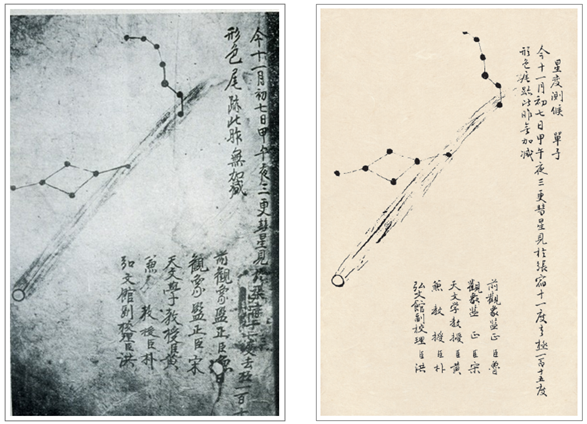 今十一月初七日甲午夜三更彗星見 度去極一百十
形色尾跡比昨無加減
前觀象監正臣曺
觀象監正臣宋
天文學教授臣黃
兼教授臣朴
弘文館副校理臣洪
星變測候 單子
今十一月初七日甲午夜三更彗星見於張宿十一度去極一百十五度
形色尾跡比昨無加減
前觀象監正臣曺
觀象監正臣宋
天文學教授臣黃
兼教授臣朴
弘文館副校理臣洪